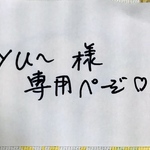 yu~ 様
専用ページ♡